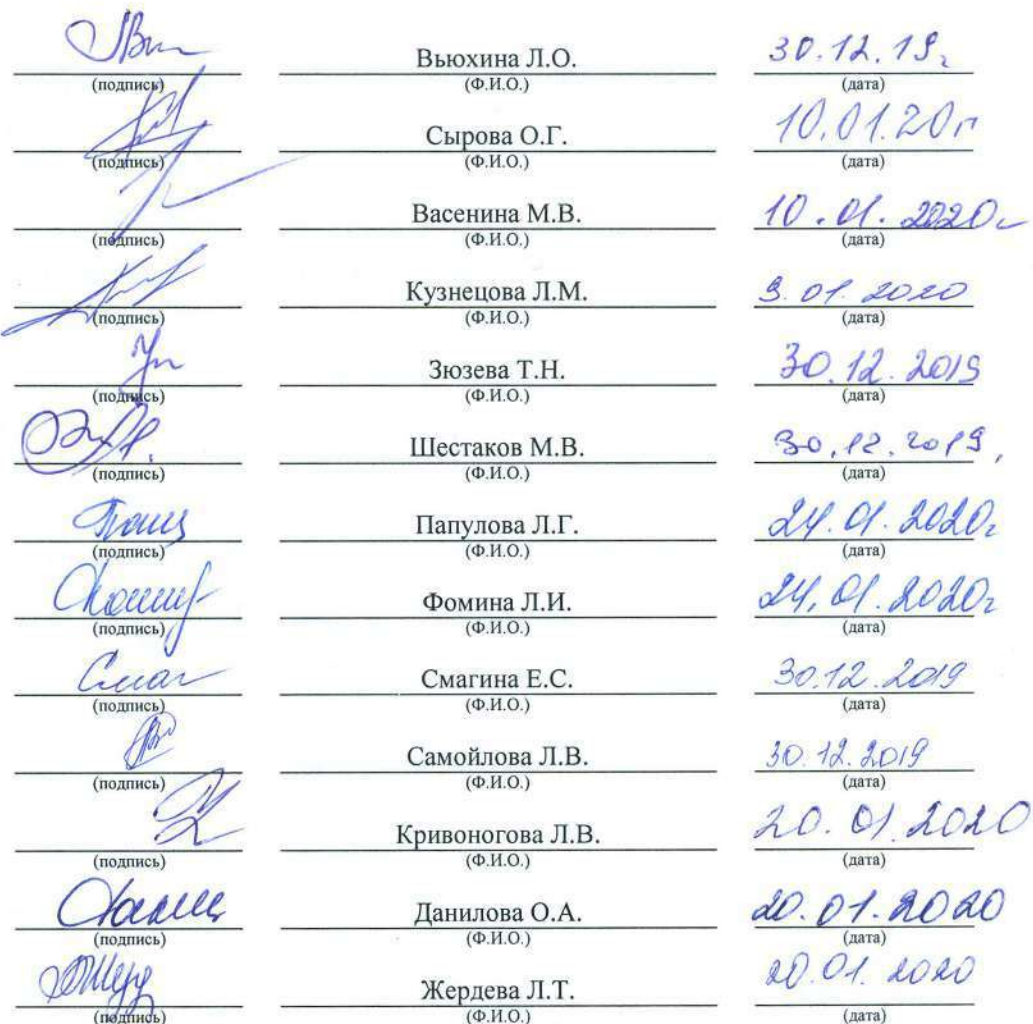 Вьюхина Л.О. 30.12.19г
(подпись) (Ф.И.О.) (дата)
Сырова О.Г. 10.01.20г
(подпись) (Ф.И.О.) (дата)
Васенина М.В. 10.01.2020г
(подпись) (Ф.И.О.) (дата)
Кузнецова Л.М. 9.01.2020
(подпись) (Ф.И.О.) (дата)
Зюзева Т.Н. 30.12.2019
(подпись) (Ф.И.О.) (дата)
Шестаков М.В. 30.12.2019,
(подпись) (Ф.И.О.) (дата)
Папулова Л.Г. 24.01.2020г
(подпись) (Ф.И.О.) (дата)
Фомина Л.И. 24.01.2020г
(подпись) (Ф.И.О.) (дата)
Смаг Смагина Е.С. 30.12.2019
(подпись) (Ф.И.О.) (дата)
Самойлова Л.В. 30.12.2019
(подпись) (Ф.И.О.) (дата)
Кривоногова Л.В. 20.01.2020
(подпись) (Ф.И.О.) (дата)
Данилова О.А. 20.01.2020
(подпись) (Ф.И.О.) (дата)
Жердева Л.Т. 20.01.2020
(подпись) (Ф.И.О.) (дата)